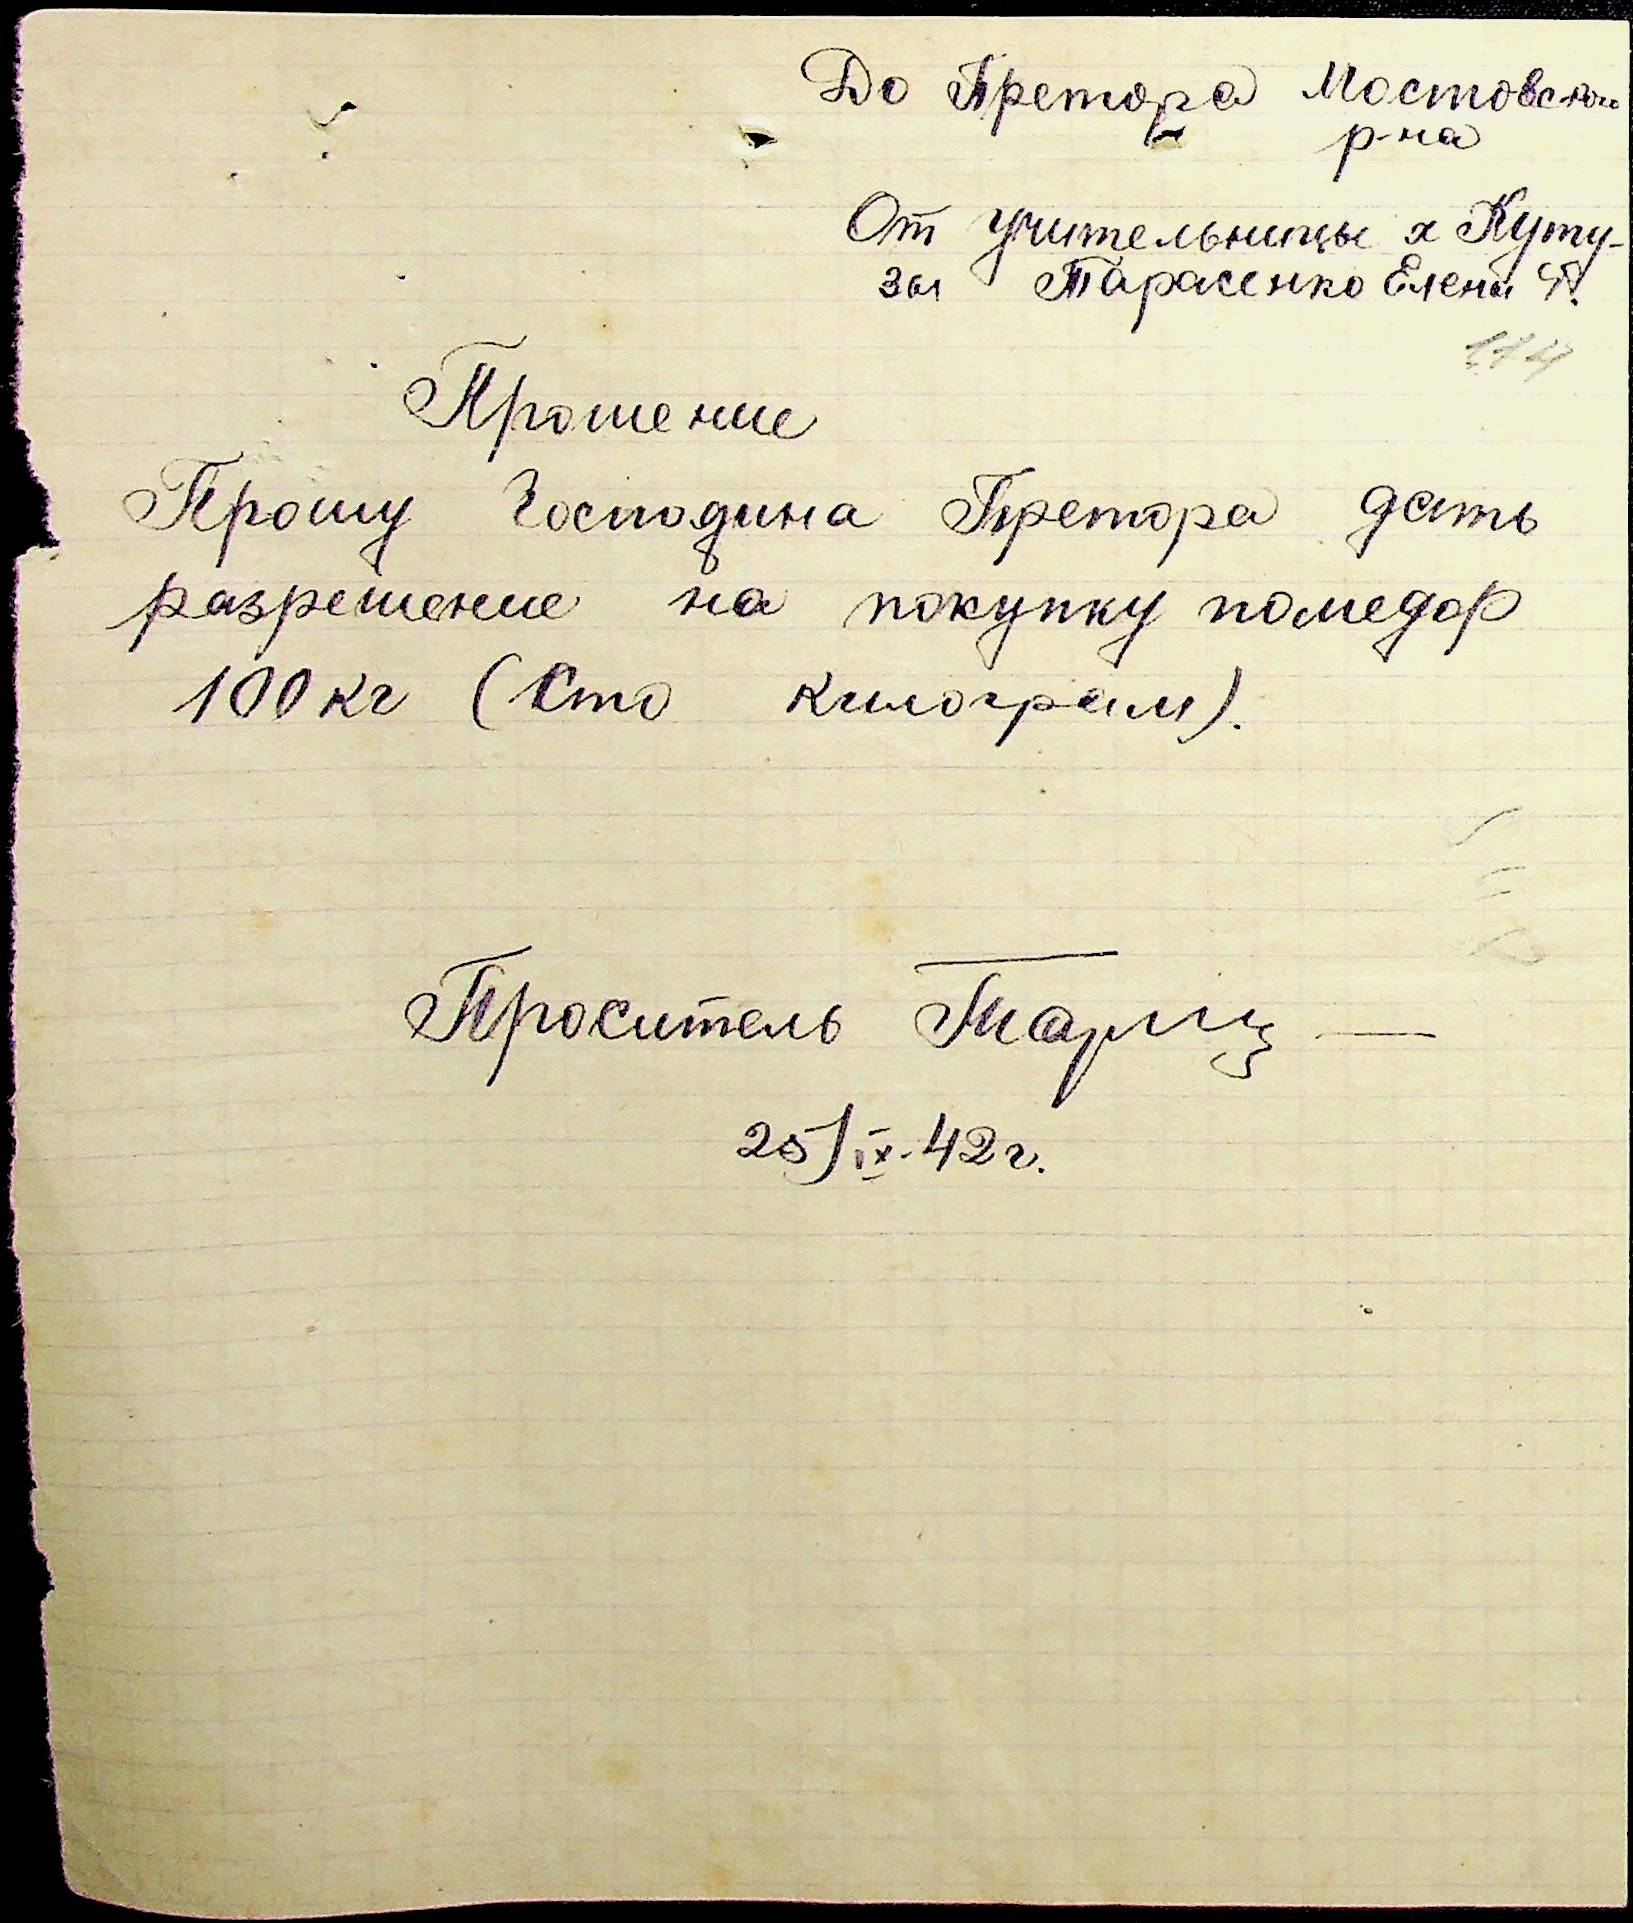 До Претора Мостовского
р-на
От учительницы х Куту-
зы Тарасенко Елены
Прошение
Прошу Господина Претора дать
разрешение на покупку помедор
100 кг (Сто килограм).
Проситель
25/IX-42 г.